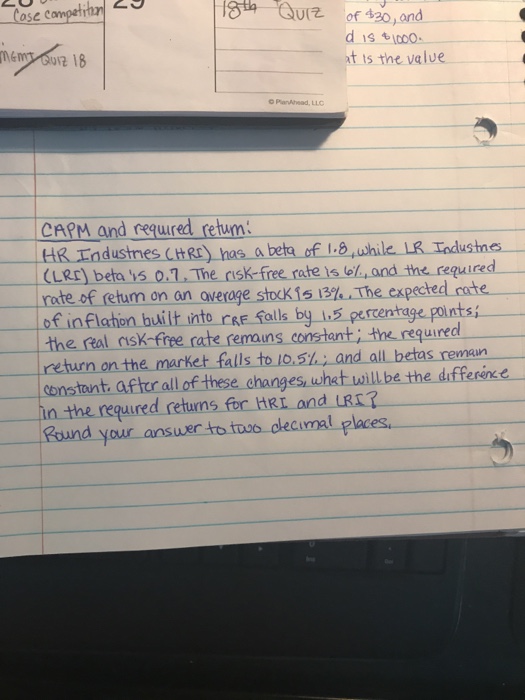 Case competition
29
18th Quiz
of $30, and
d is $1000.
at is the value
MGMT Quiz 18
© PlanAhead, LLC
CAPM and required return:
HR Industries (HRI) has a beta of 1.8, while LR Industries
(LRI) beta is 0.7. The risk-free rate is 6%, and the required
rate of return on an average stock is 13%. The expected rate
of inflation built into rRF falls by 1.5 percentage points;
the real risk-free rate remains constant; the required
return on the market falls to 10.5%; and all betas remain
constant. after all of these changes, what will be the difference
in the required returns for HRI and LRI?
Round your answer to two decimal places.